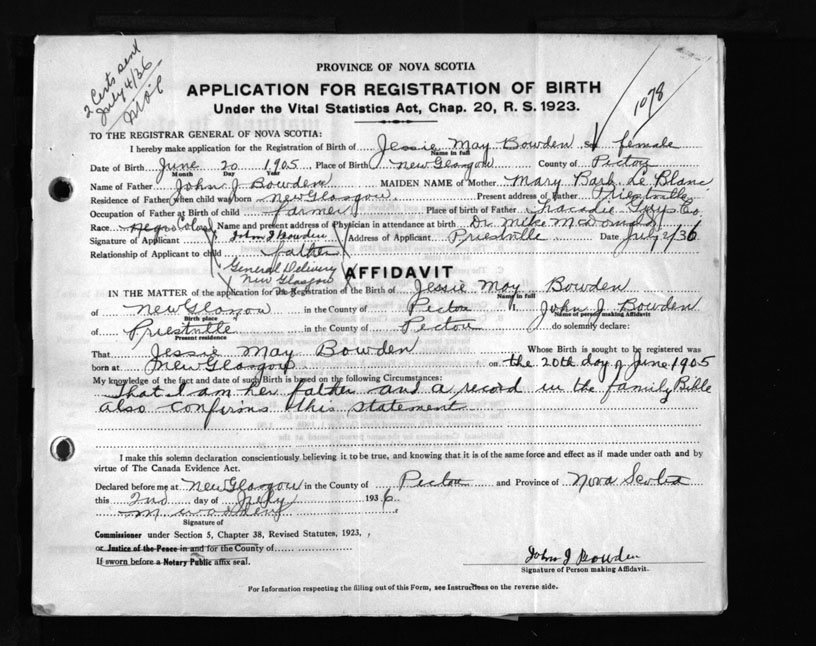 2 Certs sent
July 4/36
1078
PROVINCE OF NOVA SCOTIA
APPLICATION FOR REGISTRATION OF BIRTH
Under the Vital Statistics Act, Chap. 20, R. S. 1923.
TO THE REGISTRAR GENERAL OF NOVA SCOTIA:
I hereby make application for the Registration of Birth of Jessie May Bowden Sex female
Name in full
Date of Birth June 20 1905 Place of Birth New Glasgow County of Pictou
Month Day Year
Name of Father John J Bowden MAIDEN NAME of Mother Mary Barb Le Blanc
Residence of Father when child was born New Glasgow Present address of Father Priestville
Occupation of Father at Birth of child farmer Place of birth of Father Tracadie Guy Co.
Race Name and present address of Physician in attendance at birth Dr. Mike McDonald
Signature of Applicant John J Bowden Address of Applicant Priestville Date July 2/36
Relationship of Applicant to child father
General Delivery
New Glasgow
AFFIDAVIT
IN THE MATTER of the application for the Registration of the Birth of Jessie May Bowden
Name in full
of New Glasgow in the County of Pictou I, John J. Bowden
Birth place Name of person making Affidavit
of Priestville in the County of Pictou do solemnly declare:
Present residence
That Jessie May Bowden Whose Birth is sought to be registered was
born at New Glasgow on the 20th day of June 1905
My knowledge of the fact and date of such Birth is based on the following Circumstances:
That I am her father and a record in the family Bible
also confirms this statement
I make this solemn declaration conscientiously believing it to be true, and knowing that it is of the same force and effect as if made under oath and by
virtue of The Canada Evidence Act.
Declared before me at New Glasgow in the County of Pictou and Province of Nova Scotia
this 2nd day of July 1936
Signature of
Commissioner under Section 5, Chapter 38, Revised Statutes, 1923,
or Justice of the Peace in and for the County of
If sworn before a Notary Public affix seal.
John J Bowden
Signature of Person making Affidavit.
For Information respecting the filling out of this Form, see Instructions on the reverse side.